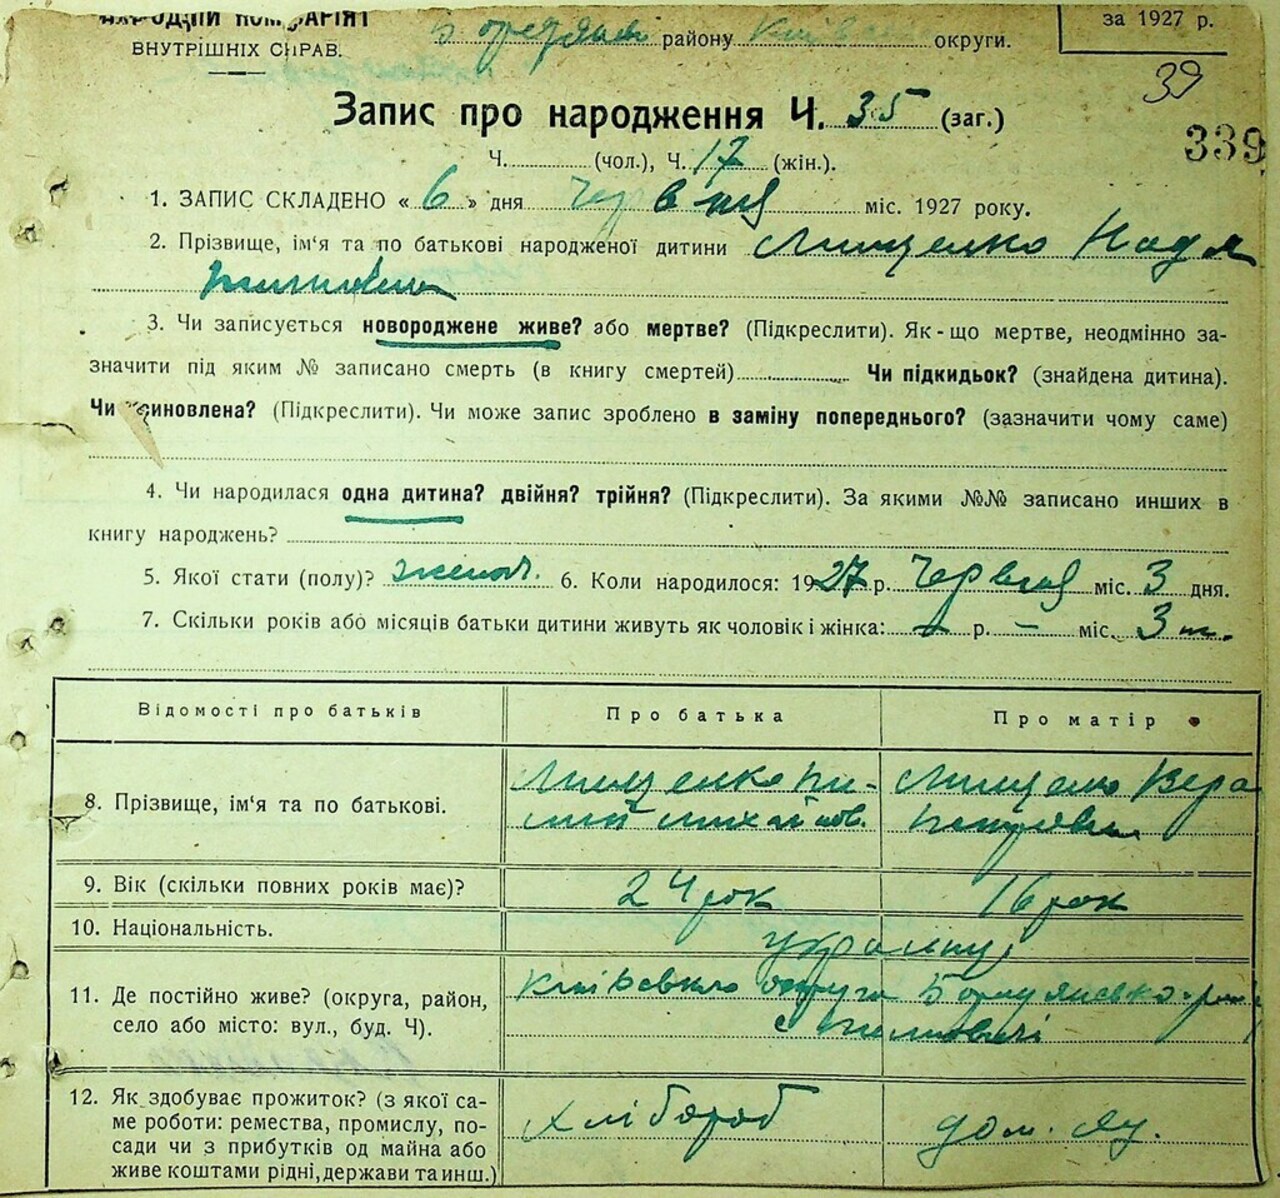 НАРОДНІЙ КОМІСАРІЯТ
ВНУТРІШНІХ СПРАВ.
Бородянськ району Київськ округи.
за 1927 р.
39
Запис про народження Ч. 35 (заг.)
339
Ч. (чол.), Ч. 17 (жін.).
1. ЗАПИС СКЛАДЕНО « 6 » дня Червня міс. 1927 року.
2. Прізвище, ім'я та по батькові народженої дитини Лищенко Надя
3. Чи записується новороджене живе? або мертве? (Підкреслити). Як-що мертве, неодмінно за-
значити під яким № записано смерть (в книгу смертей) Чи підкидьок? (знайдена дитина).
Чи усиновлена? (Підкреслити). Чи може запис зроблено в заміну попереднього? (зазначити чому саме)
4. Чи народилася одна дитина? двійня? трійня? (Підкреслити). За якими №№ записано инших в
книгу народжень?
5. Якої стати (полу)? 6. Коли народилося: 1927 р. Червня міс. 3 дня.
7. Скільки років або місяців батьки дитини живуть як чоловік і жінка: - р. - міс. 3 м.
Відомості про батьків Про батька Про матір
8. Прізвище, ім'я та по батькові. Лищенко Михайлов. Лищенко Вера Петровна
9. Вік (скільки повних років має)? 24 рок 16 рок
10. Національність. українці
11. Де постійно живе? (округа, район, Київська округа Бородянсько
село або місто: вул., буд. Ч). с
12. Як здобуває прожиток? (з якої са-
ме роботи: ремества, промислу, по- Хлібороб дом.
сади чи з прибутків од майна або
живе коштами рідні, держави та инш.)